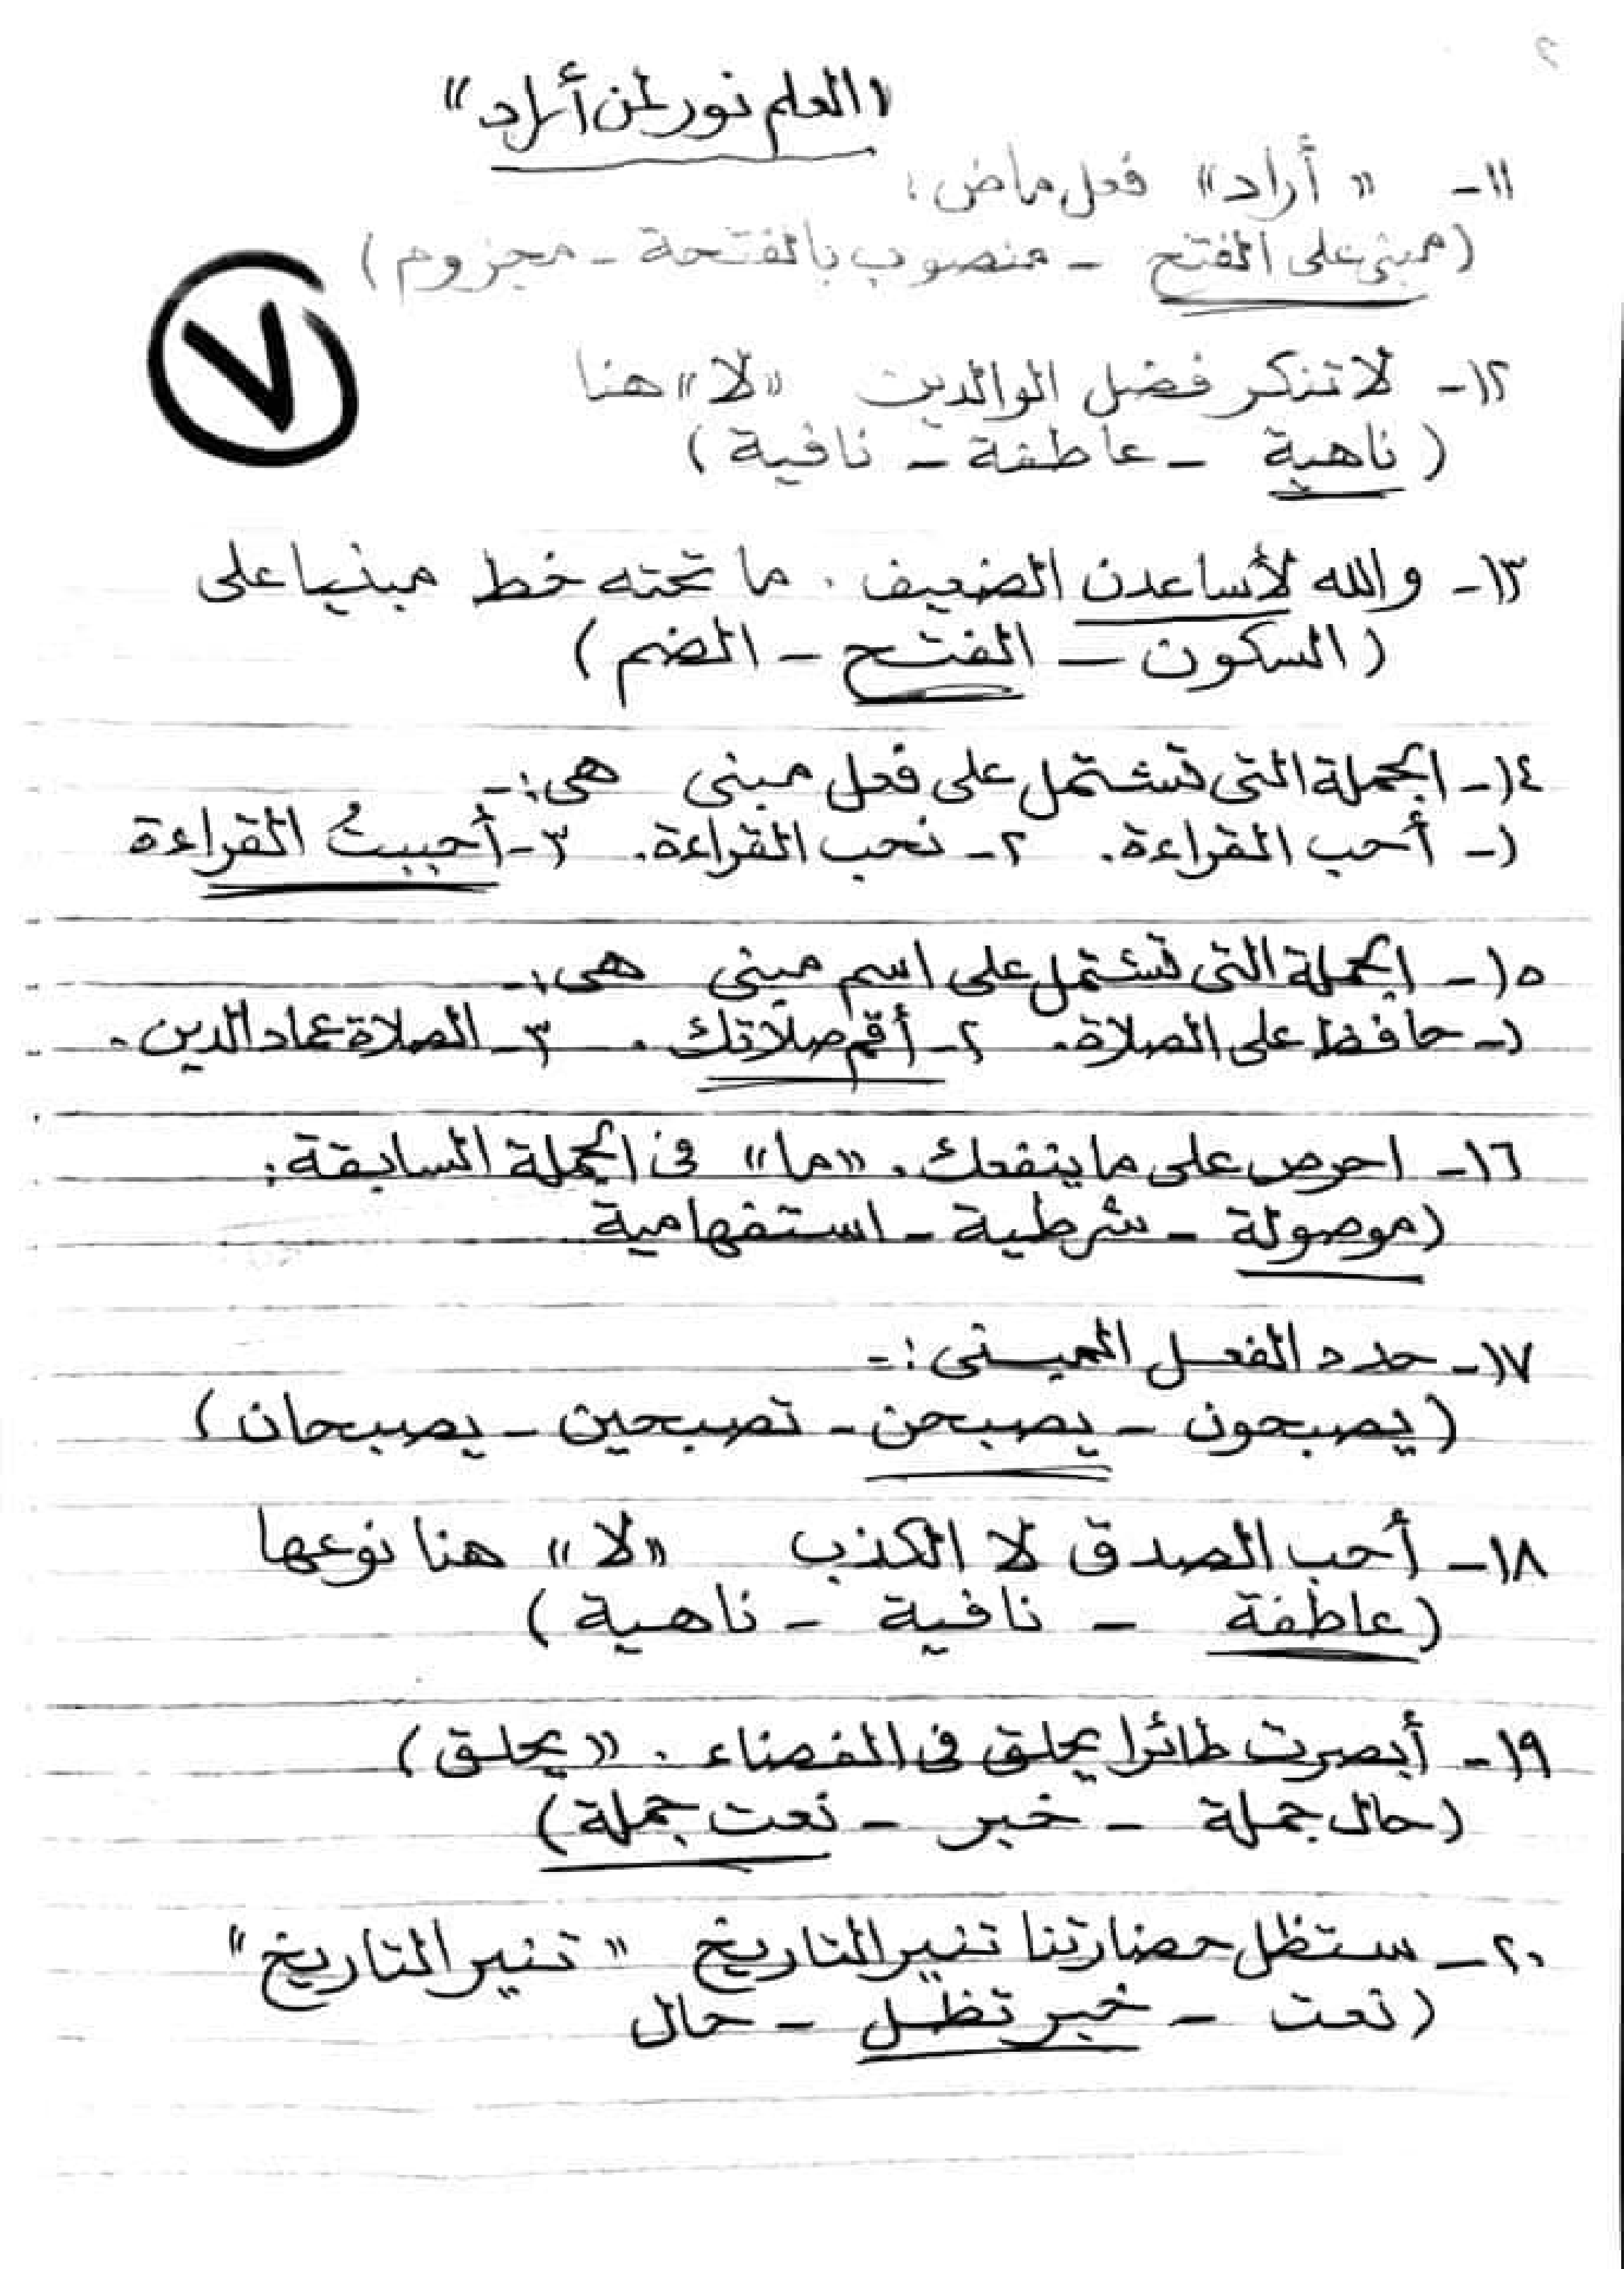 ٢
"العلم نور لمن أراد"
١١- "أراد" فعل ماض:
(مبنى على الفتح - منصوب بالفتحة - مجزوم)
٧
١٢- لا تنكر فضل الوالدين "لا" هنا
(ناهية - عاطفة - نافية)
١٣- والله لأساعدن الضعيف. ما تحته خط مبنيا على
(السكون - الفتح - الضم)
١٤- الجملة التى تشتمل على فعل مبنى هى:-
١- أحب القراءة. ٢- نحب القراءة. ٣- أحببتُ القراءة
١٥- الجملة التى تشتمل على اسم مبنى هى:-
١- حافظ على الصلاة. ٢- أقم صلاتك. ٣- الصلاة عماد الدين.
١٦- احرص على ما ينفعك. "ما" فى الجملة السابقة:
(موصولة - شرطية - استفهامية
١٧- حدد الفعل المبنى:-
(يصبحون - يصبحن - تصبحين - يصبحان)
١٨- أحب الصدق لا الكذب "لا" هنا نوعها
(عاطفة - نافية - ناهية)
١٩- أبصرت طائرا يحلق فى الفضاء. "يحلق)
(حال جملة - خبر - نعت جملة)
٢٠- ستظل حضارتنا تنير التاريخ "تنير التاريخ"
(نعت - خبر تظل - حال